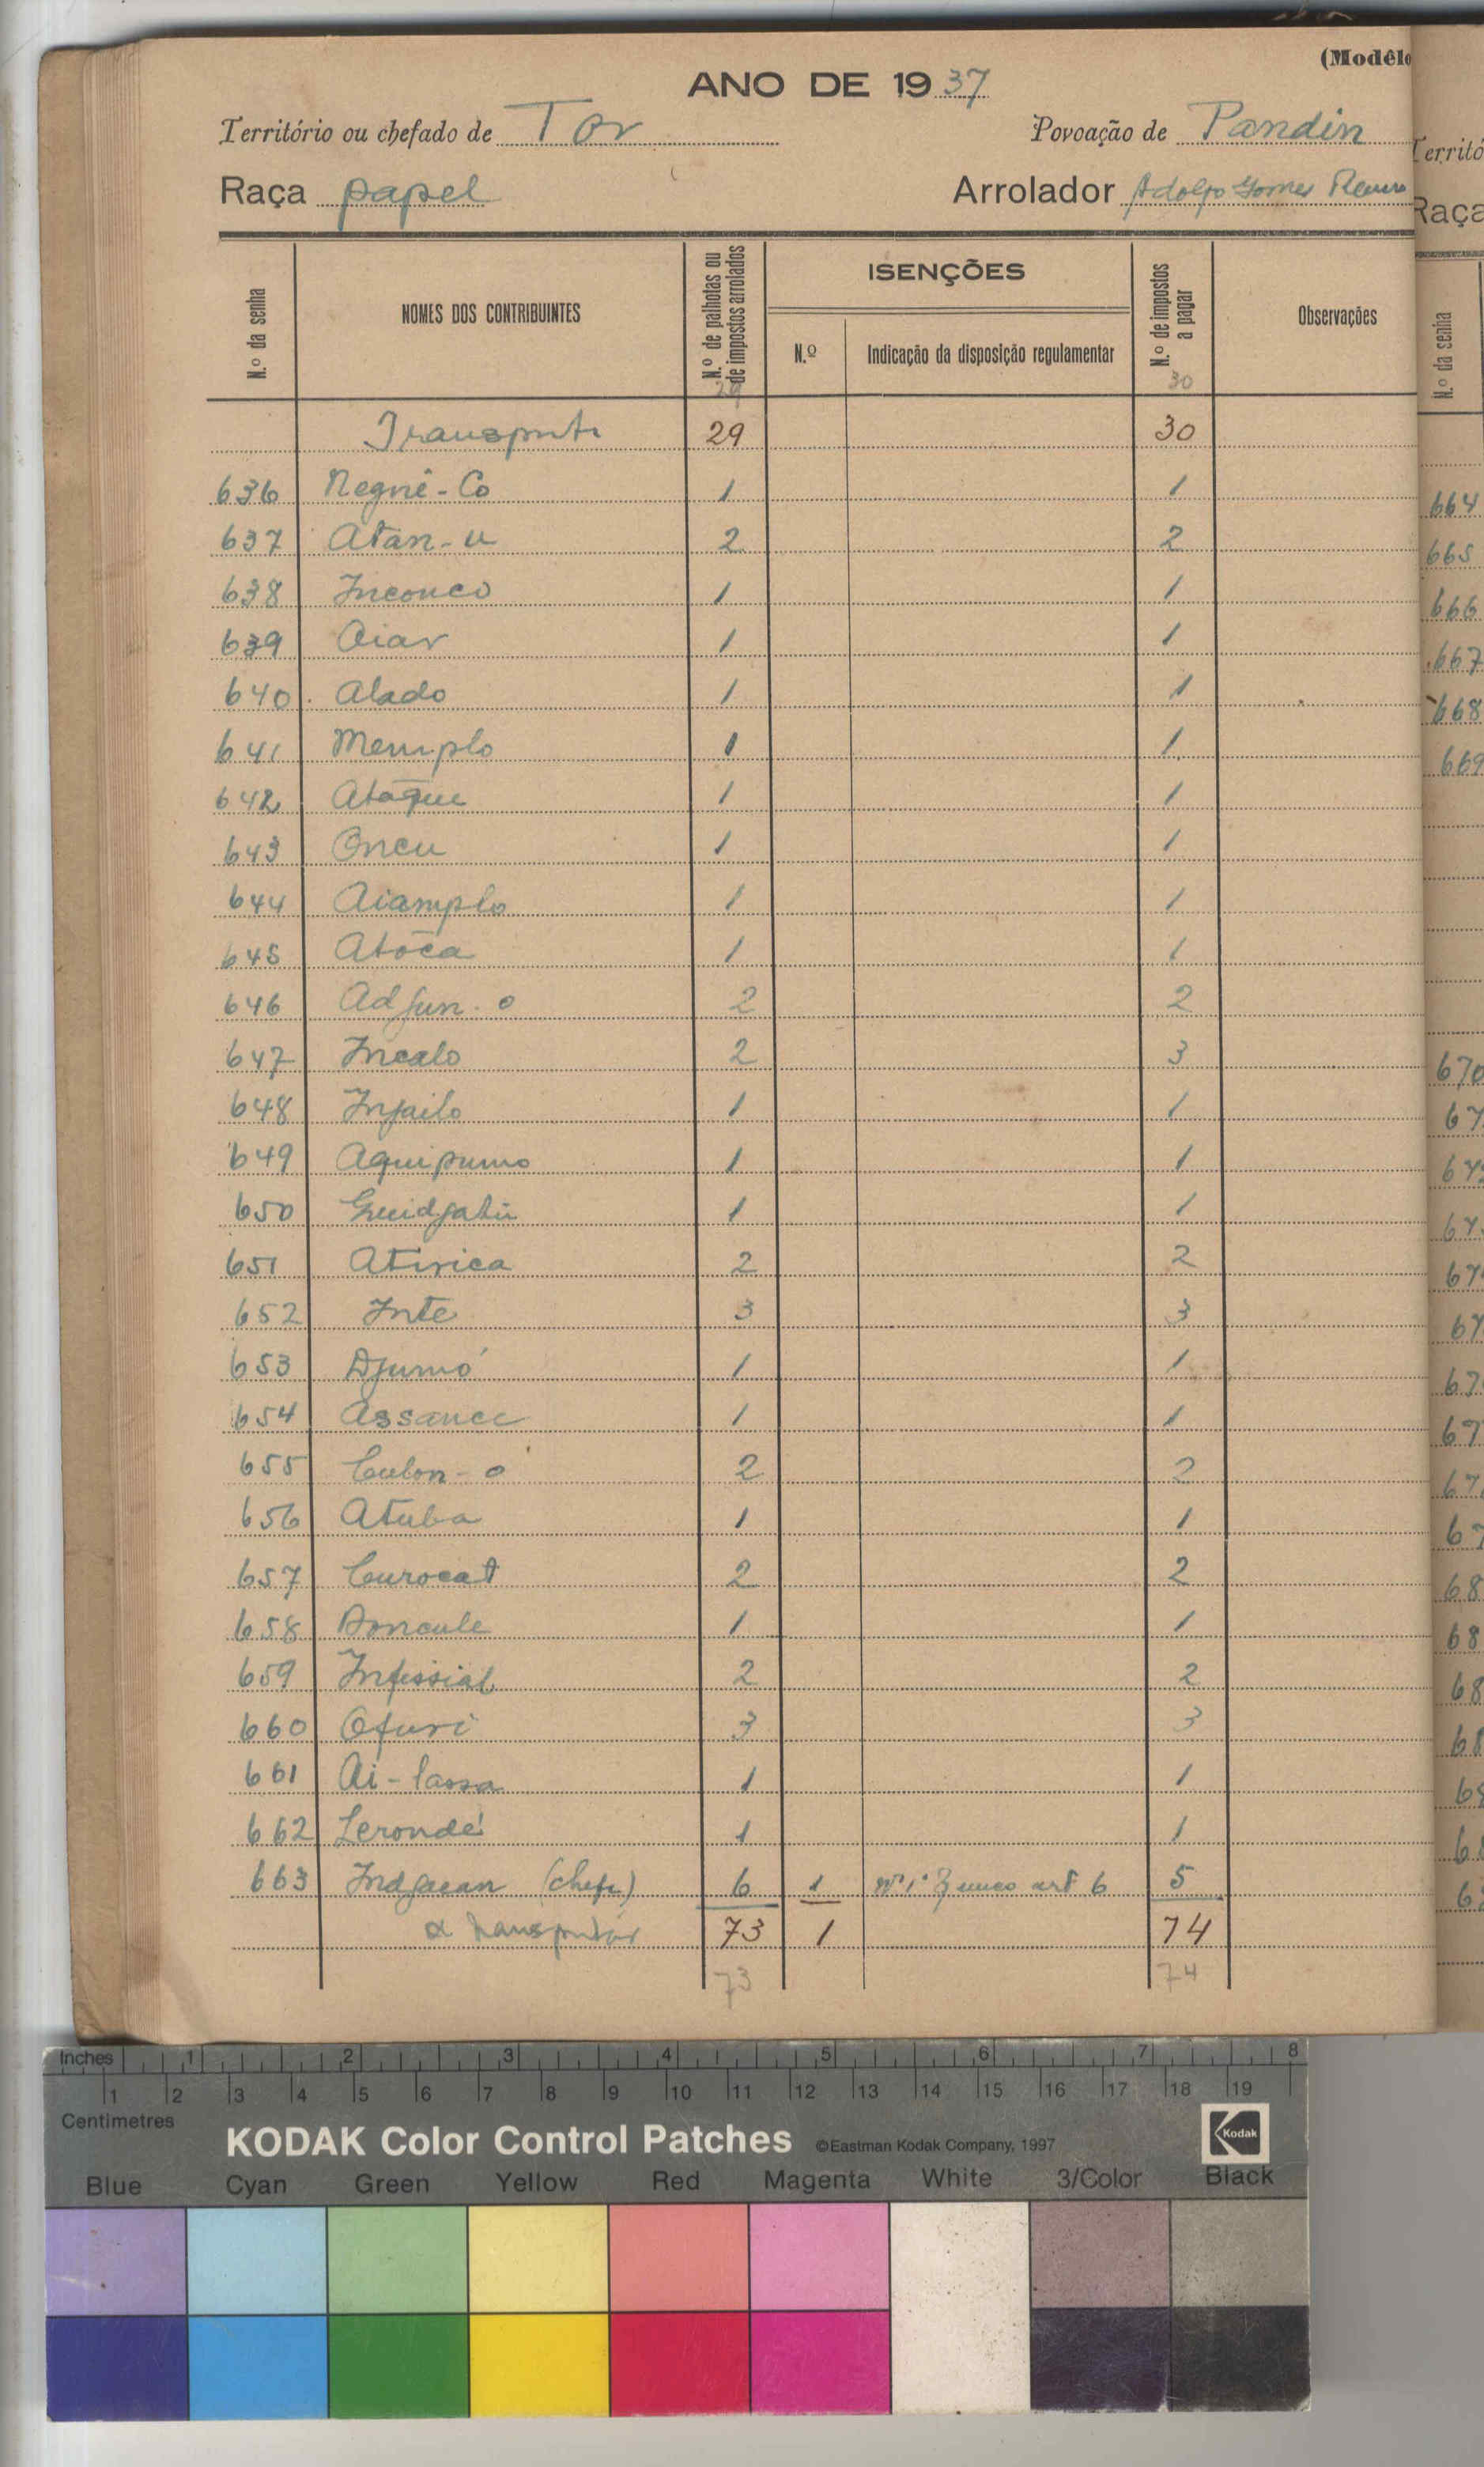 (Modêlo
ANO DE 1937
Território ou chefado de Tor Povoação de Pandin
Raça papel Arrolador Adolfo Gomes
N.º da senha NOMES DOS CONTRIBUINTES N.º de palhotas ou de impostos arrolados ISENÇÕES N.º Indicação da disposição regulamentar N.º de impostos a pagar Observações
29 30
Transporte 29 30
636 Negné-Co 1 1
637 Atan-u 2 2
638 Inconco 1 1
639 Aiar 1 1
640 Alado 1 1
641 Memplo 1 1
642 Ataque 1 1
643 Oncu 1 1
644 Aiamplo 1 1
645 Atóca 1 1
646 Adjun-o 2 2
647 Incalo 2 3
648 Injailo 1 1
649 Aquipumo 1 1
650 Guidjatú 1 1
651 Atirica 2 2
652 Inte 3 3
653 Djumó 1 1
654 Assance 1 1
655 Culon-o 2 2
656 Atuba 1 1
657 Curocat 2 2
658 Doncule 1 1
659 Infissial 2 2
660 Ofuri 3 3
661 Ai-lassa 1 1
662 Lerondé 1 1
663 Indjacan (chefe) 6 1 nº 1º § unico art 6 5
a transportar 73 1 74
73 74
Territó
Raça
N.º da senha
664
665
666
667
668
669
670
Inches 1 2 3 4 5 6 7 8
1 2 3 4 5 6 7 8 9 10 11 12 13 14 15 16 17 18 19
Centimetres
KODAK Color Control Patches ©Eastman Kodak Company, 1997 Kodak
Blue Cyan Green Yellow Red Magenta White 3/Color Black